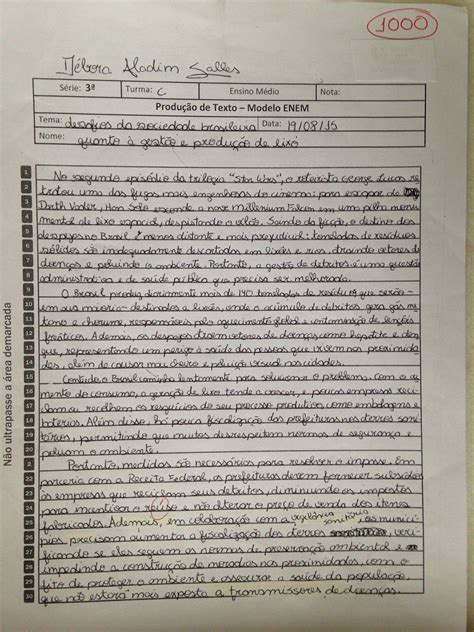 1000
Débora Aladim Salles
Série: 3ª Turma: C Ensino Médio Nota:
Produção de Texto – Modelo ENEM
Tema: desafios da sociedade brasileira Data: 19/08/15
Nome: quanto à gestão e produção de lixo
Não ultrapasse a área demarcada
1 No segundo episódio da trilogia "Star Wars", o roteirista George Lucas re-
2 tratou uma das fugas mais engenhosas do cinema: para escapar de
3 Darth Vader, Han Solo esconde a nave Millenium Falcon em uma pilha monu-
4 mental de lixo espacial, despistando o vilão. Saindo da ficção, o destino dos
5 despejos no Brasil é menos distante e mais prejudicial: toneladas de resíduos
6 sólidos são inadequadamente descartados em lixões e rios, atraindo vetores de
7 doenças e poluindo o ambiente. Portanto, a gestão de detritos é uma questão
8 administrativa e de saúde pública que precisa ser melhorada.
9 O Brasil produz diariamente mais de 140 toneladas de resíduos que serão –
10 em sua maioria – destinados a lixões, onde o acúmulo de detritos gera gás me-
11 tano e chorume, responsáveis pelo aquecimento global e contaminação de lençóis
12 freáticos. Além disso, os despojos atraem vetores de doenças como hepatite e den-
13 gue, representando um perigo à saúde das pessoas que vivem nas proximida-
14 des, além de causar mau cheiro e poluição visual nas cidades.
15 Contudo, o Brasil caminha lentamente para solucionar o problema. Com o au-
16 mento do consumo, a geração de lixo tende a crescer, e poucas empresas reci-
17 clam ou recolhem os resquícios do seu processo produtivo como embalagens e
18 baterias. Além disso, há pouca fiscalização das prefeituras nos aterros sani-
19 tários, permitindo que muitos desrespeitem normas de segurança e
20 poluam o ambiente.
21 Portanto, medidas são necessárias para resolver o impasse. Em
22 parceria com a Receita Federal, as prefeituras devem fornecer subsídios
23 às empresas que reciclam seus detritos, diminuindo os impostos
24 para incentivar o reúso e não alterar o preço de venda dos itens
25 fabricados. Ademais, em colaboração com a vigilância sanitária, os municí-
26 pios precisam aumentar a fiscalização dos aterros verifi-
27 cando se eles seguem as normas de preservação ambiental e
28 impedindo a construção de moradias nas proximidades, com o
29 fito de proteger o ambiente e assegurar a saúde da população,
30 que não estará mais exposta a transmissores de doenças.